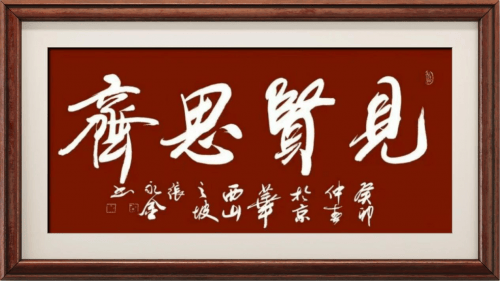 見賢思齊
癸卯仲春於京華西山之坡張永金书